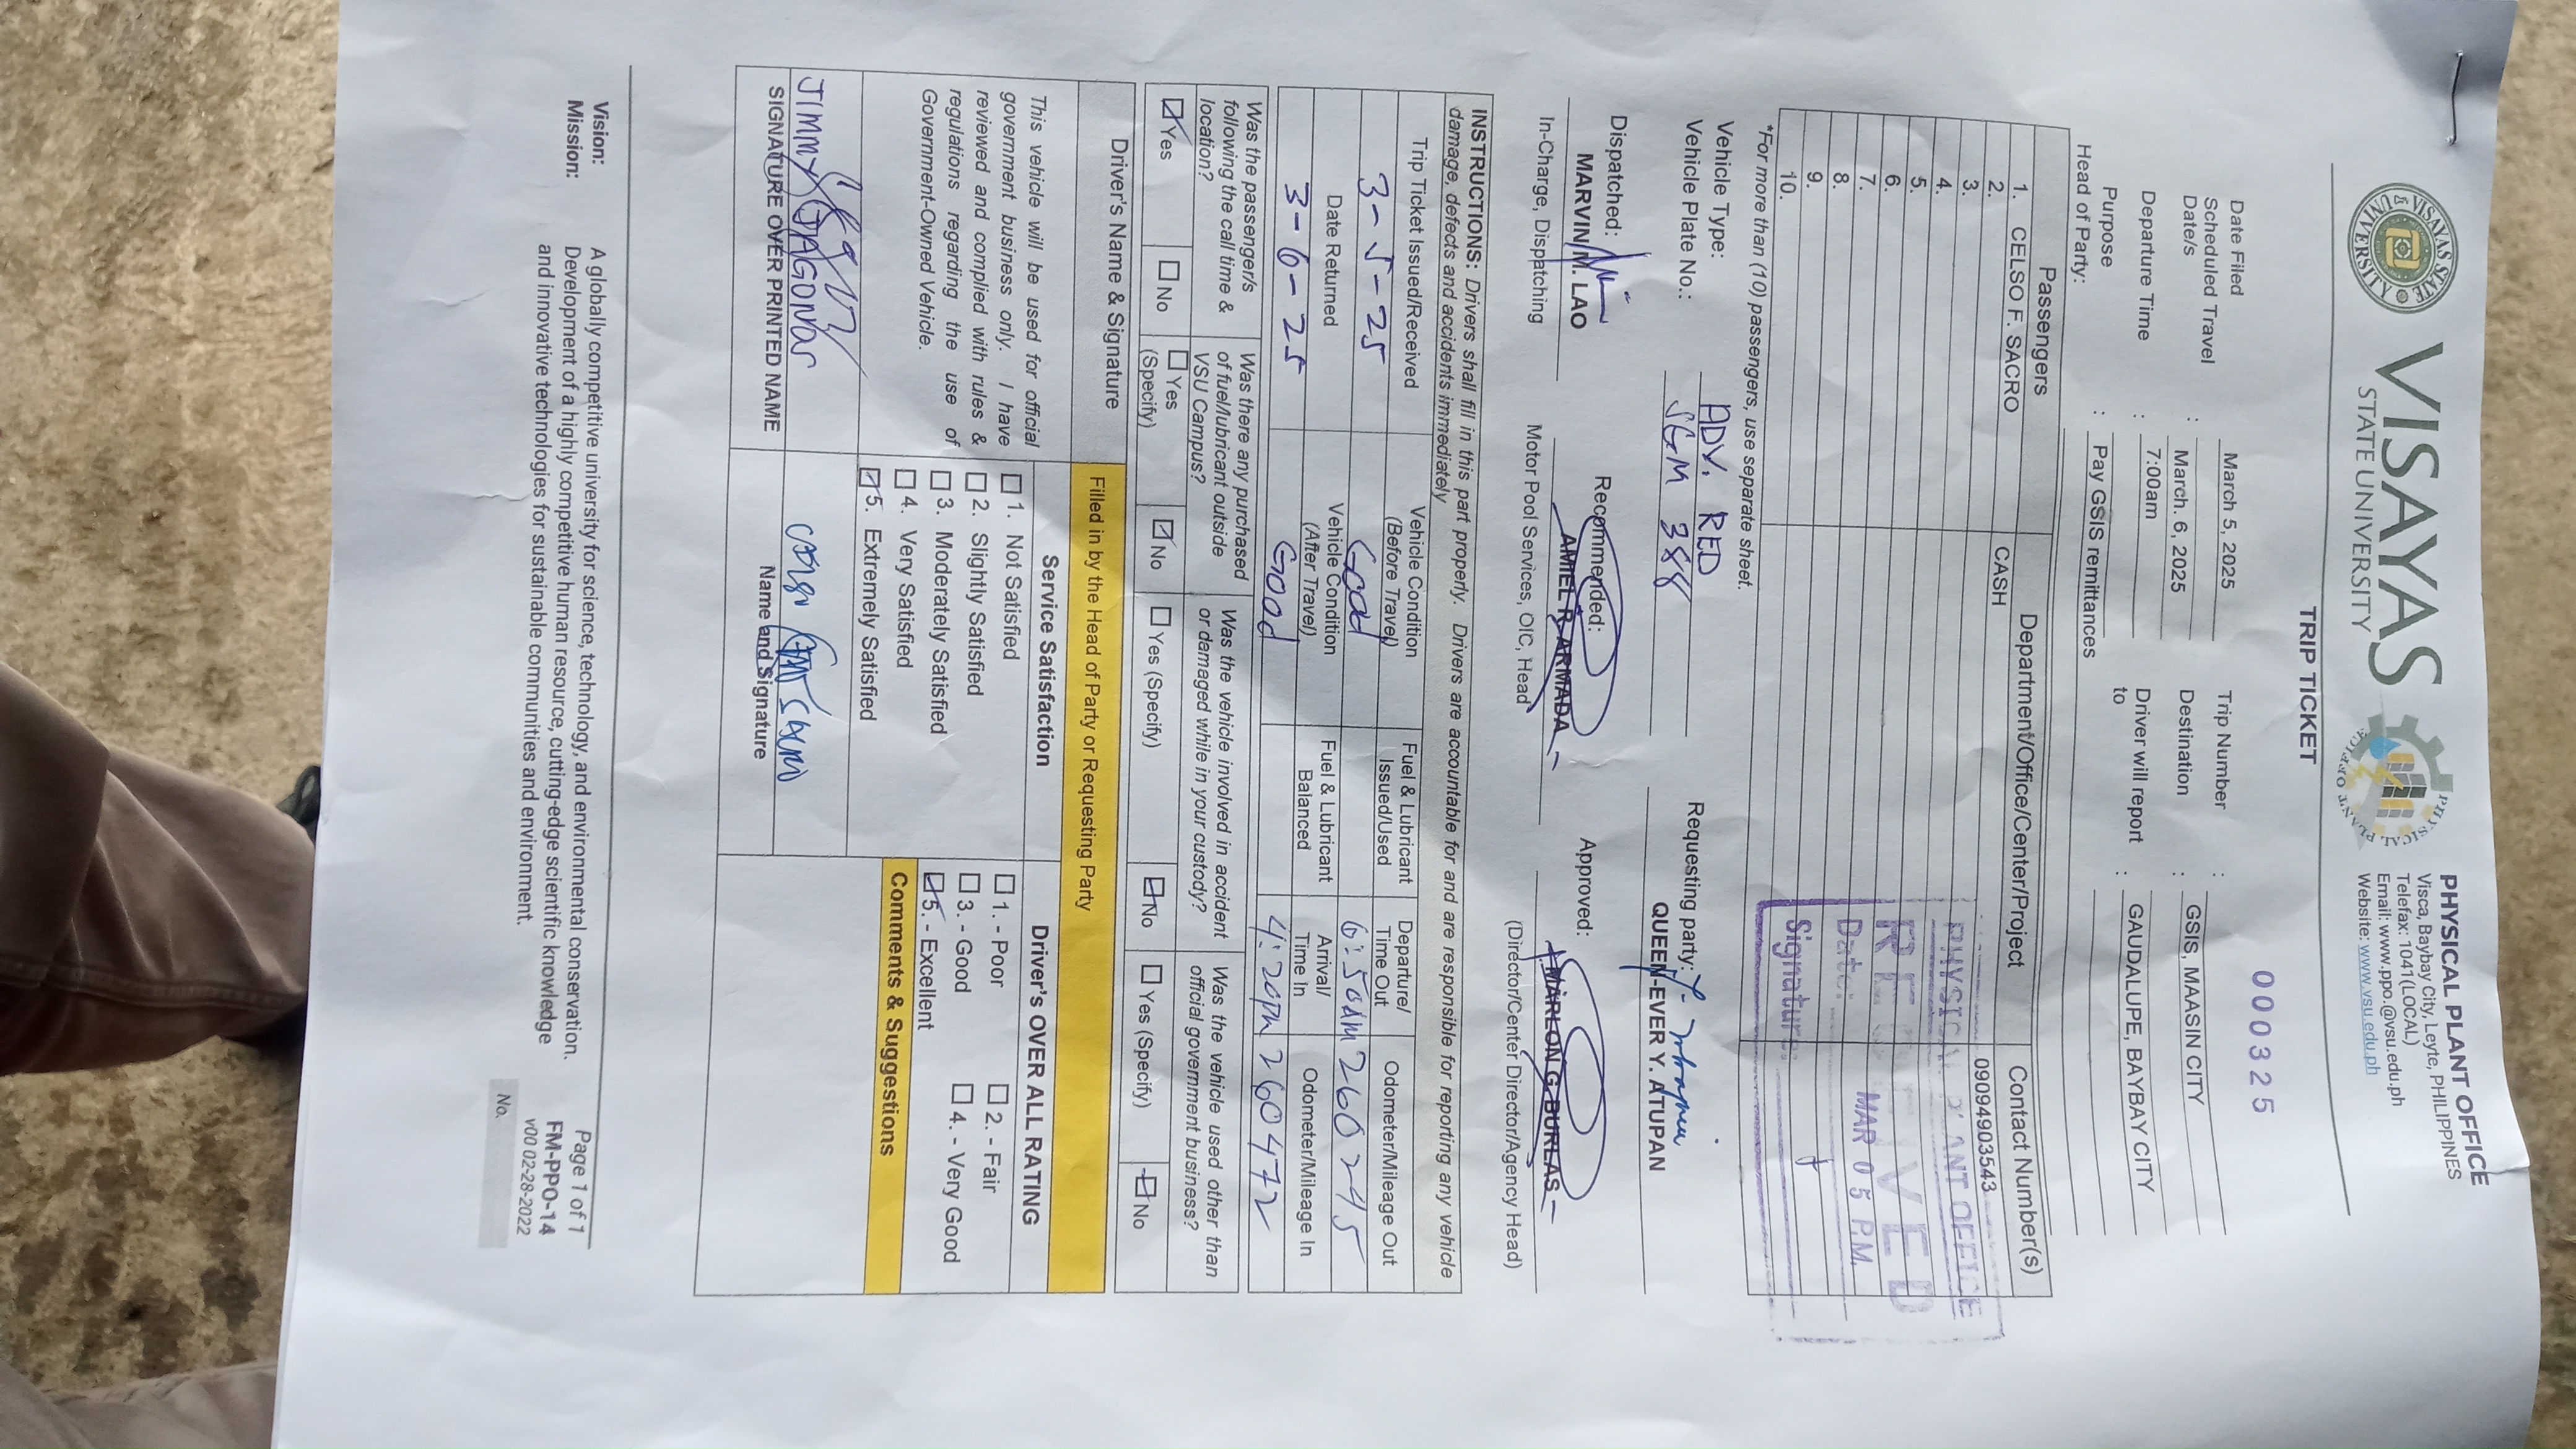 VISAYAS
STATE UNIVERSITY
VISAYAS STATE UNIVERSITY
PHYSICAL PLANT OFFICE
PHYSICAL PLANT OFFICE
Visca, Baybay City, Leyte, PHILIPPINES
Telefax: 1041(LOCAL)
Email: www.ppo.@vsu.edu.ph
Website: www.vsu.edu.ph
TRIP TICKET
000325
Date Filed : March 5, 2025 Trip Number :
Scheduled Travel Date/s : March. 6, 2025 Destination : GSIS, MAASIN CITY
Departure Time : 7:00am Driver will report to : GAUDALUPE, BAYBAY CITY
Purpose : Pay GSIS remittances
Head of Party:
Passengers Department/Office/Center/Project Contact Number(s)
1. CELSO F. SACRO CASH 09094903543
2.
3.
4.
5.
6.
7.
8.
9.
10.
PHYSICAL PLANT OFFICE
RECEIVED
Date: MAR 05 P.M.
Signature:
*For more than (10) passengers, use separate sheet.
Vehicle Type: ADV. RED
Vehicle Plate No.: SGM 388
Requesting party:
QUEEN-EVER Y. ATUPAN
Dispatched:
MARVIN M. LAO
In-Charge, Dispatching
Recommended:
AMIEL R. ARMADA
Motor Pool Services, OIC, Head
Approved:
MARLON G. BURLAS
(Director/Center Director/Agency Head)
INSTRUCTIONS: Drivers shall fill in this part properly. Drivers are accountable for and are responsible for reporting any vehicle
damage, defects and accidents immediately
Trip Ticket Issued/Received Vehicle Condition (Before Travel) Fuel & Lubricant Issued/Used Departure/ Time Out Odometer/Mileage Out
3-5-25 Good 6:50am 260245
Date Returned Vehicle Condition (After Travel) Fuel & Lubricant Balanced Arrival/ Time In Odometer/Mileage In
3-6-25 Good 4:20pm 260472
Was the passenger/s following the call time & location?
Was there any purchased of fuel/lubricant outside VSU Campus?
Was the vehicle involved in accident or damaged while in your custody?
Was the vehicle used other than official government business?
Yes No Yes (Specify) No Yes (Specify) No Yes (Specify) No
Driver's Name & Signature
Filled in by the Head of Party or Requesting Party
This vehicle will be used for official
government business only. I have
reviewed and complied with rules &
regulations regarding the use of
Government-Owned Vehicle.
JIMMY DAGONOS
SIGNATURE OVER PRINTED NAME
Service Satisfaction
1. Not Satisfied
2. Slightly Satisfied
3. Moderately Satisfied
4. Very Satisfied
5. Extremely Satisfied
Name and Signature
Driver's OVER ALL RATING
1. - Poor 2. - Fair
3. - Good 4. - Very Good
5. - Excellent
Comments & Suggestions
Vision: A globally competitive university for science, technology, and environmental conservation.
Mission: Development of a highly competitive human resource, cutting-edge scientific knowledge
and innovative technologies for sustainable communities and environment.
Page 1 of 1
FM-PPO-14
v00 02-28-2022
No.